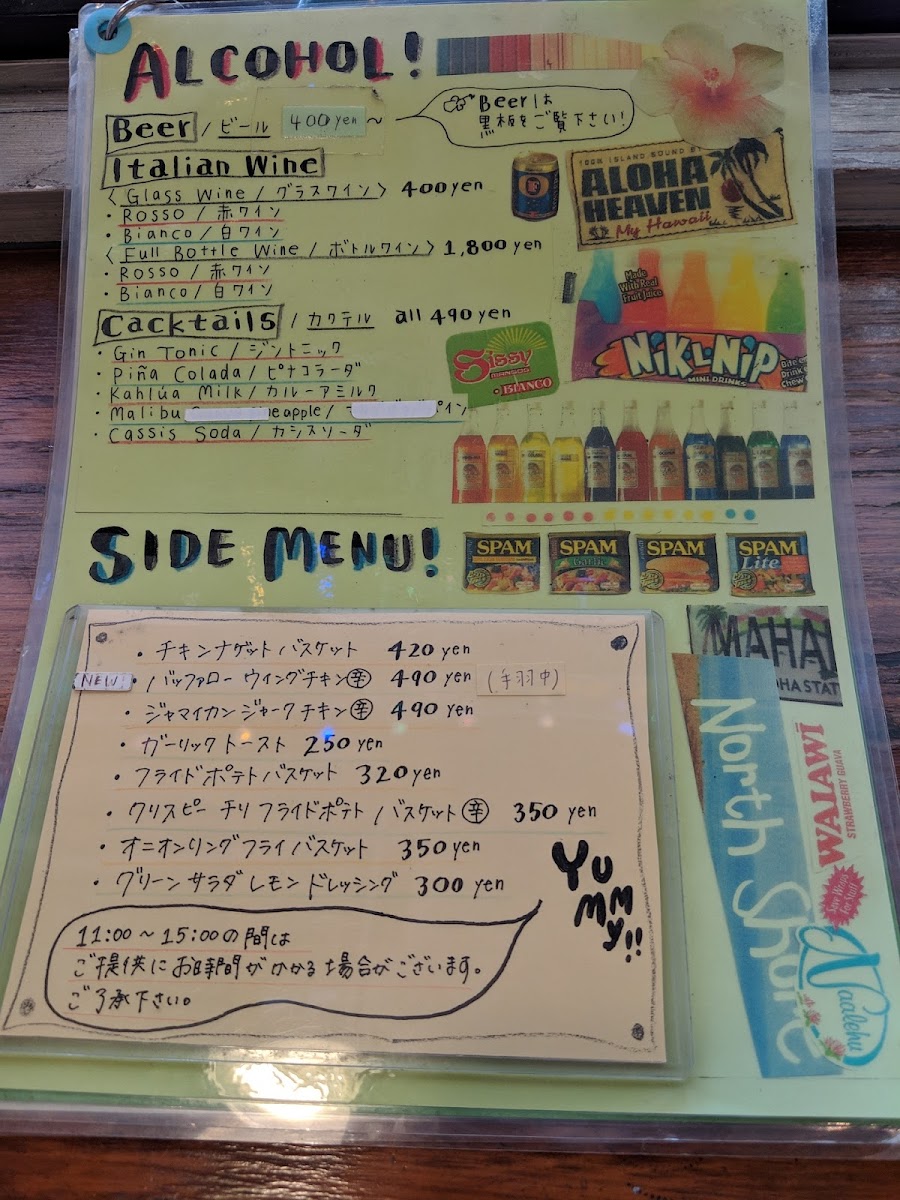 ALCOHOL!
Beer / ビール 400yen~
Beerは
黒板をご覧下さい!
Italian Wine
〈Glass Wine / グラスワイン〉 400yen
・Rosso / 赤ワイン
・Bianco / 白ワイン
〈Full Bottle Wine / ボトルワイン〉 1,800yen
・Rosso / 赤ワイン
・Bianco / 白ワイン
Cacktails / カクテル all 490yen
・Gin Tonic / ジントニック
・Piña Colada / ピナコラーダ
・Kahlúa Milk / カルーアミルク
・Malibu eapple / パイン
・Cassis Soda / カシスソーダ
100% ISLAND SOUND BY
ALOHA
HEAVEN
My Hawaii
Made
With Real
Fruit Juice
NIK-L-NIP
MINI DRINKS
Bite
Drink
Chew
Sissy
BIANCO
SIDE MENU!
SPAM
SPAM
Garlic
SPAM
SPAM
Lite
MAHA
OHA STAT
・チキンナゲットバスケット 420yen
NEW ・バッファローウイングチキン㊛ 490yen (手羽中)
・ジャマイカンジャークチキン 辛 490yen
・ガーリックトースト 250yen
・フライドポテトバスケット 320yen
・クリスピーチリフライドポテトバスケット 辛 350yen
・オニオンリングフライバスケット 350yen
・グリーンサラダレモンドレッシング 300yen
YU
MM
Y!!
11:00~15:00の間は
ご提供にお時間がかかる場合がございます。
ご了承下さい。
North Shore
WAIAWĪ
STRAWBERRY GUAVA
Naalehu